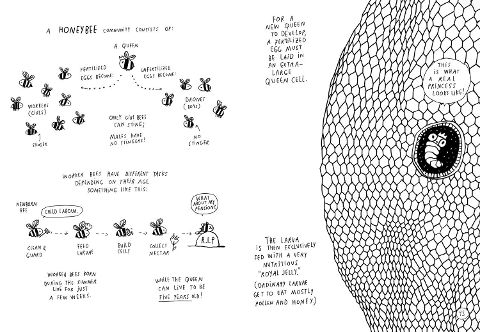 A HONEYBEE COMMUNITY CONSISTS OF:
A QUEEN
FERTILIZED
EGGS BECOME:
UNFERTILIZED
EGGS BECOME:
WORKERS
(GIRLS)
DRONES
(BOYS)
ONLY GIRL BEES
CAN STING;
MALES HAVE
NO STINGERS!
STINGER
NO
STINGER
WORKER BEES HAVE DIFFERENT TASKS
DEPENDING ON THEIR AGE,
SOMETHING LIKE THIS:
NEWBORN
BEE
CHILD LABOUR.
WHAT
ABOUT MY
PENSION?
CLEAN &
GUARD
FEED
LARVAE
BUILD
CELLS
COLLECT
NECTAR
R.I.P
WORKER BEES BORN
DURING THE SUMMER
LIVE FOR JUST
A FEW WEEKS.
WHILE THE QUEEN
CAN LIVE TO BE
FIVE YEARS OLD!
FOR A
NEW QUEEN
TO DEVELOP,
A FERTILIZED
EGG MUST
BE LAID IN
AN EXTRA-
LARGE
QUEEN CELL.
THIS
IS WHAT
A REAL
PRINCESS
LOOKS LIKE!
THE LARVA
IS THEN EXCLUSIVELY
FED WITH A VERY
NUTRITIOUS
"ROYAL JELLY."
(ORDINARY LARVAE
GET TO EAT MOSTLY
POLLEN AND HONEY.)